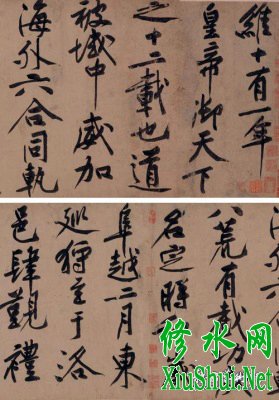 維十有一年
皇帝御天下
之十二載也道
被域中威加
海外六合同軌
八荒有截功成
名定時
阜越二月東
巡狩至于洛
邑肆覲禮
修水网
XiuShui.Net